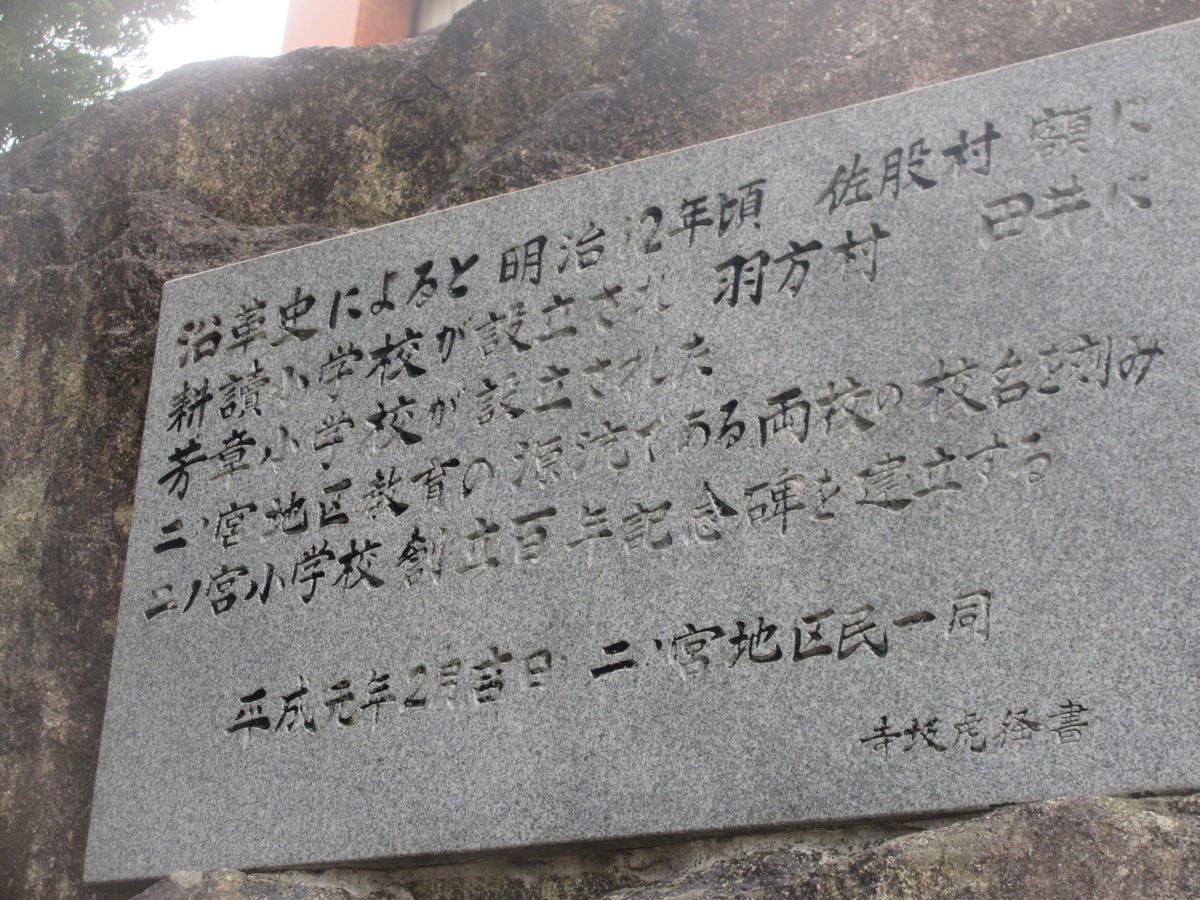 沿革史によると 明治12年頃 佐股村 額に
耕讀小学校が設立され 羽方村 田井に
芳章小学校が設立された
二ノ宮地区教育の源流である両校の校名を刻み
二ノ宮小学校創立百年記念碑を建立する
平成元年2月吉日 二ノ宮地区民一同
寺坂虎経書